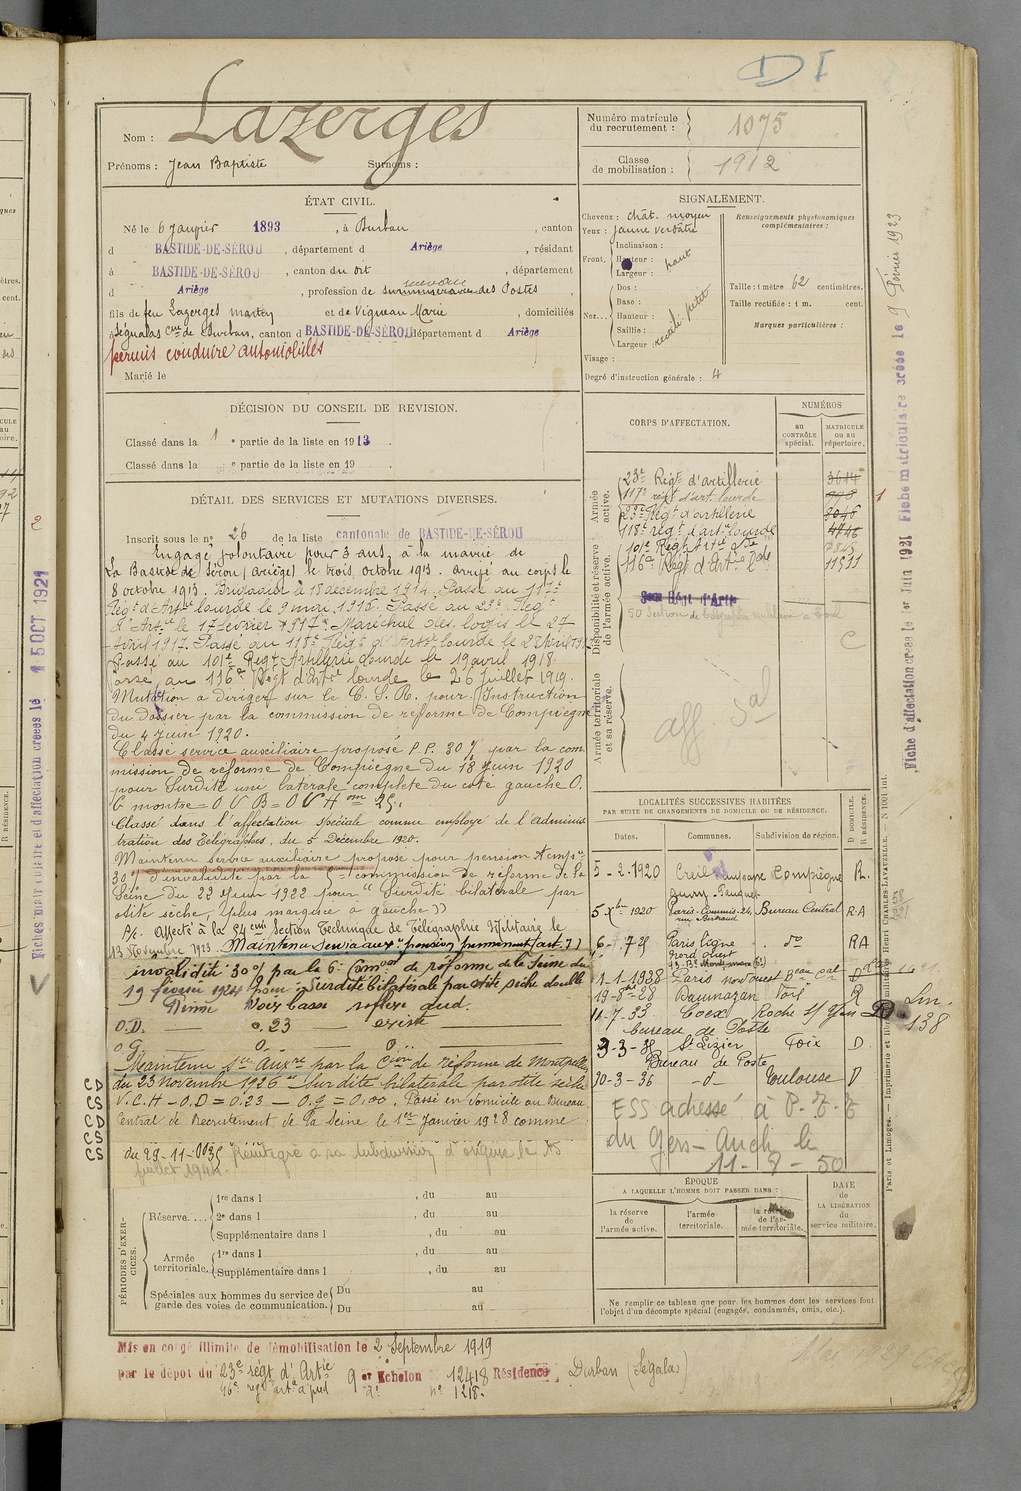 DI
Nom : Lazerges
Prénoms : Jean Baptiste Surnoms :
Numéro matricule du recrutement : 1075
Classe de mobilisation : 1912
ÉTAT CIVIL.
Né le 6 Janvier 1893, à Durban, canton
d BASTIDE-DE-SÉROU, département d Ariège, résidant
à BASTIDE-DE-SÉROU, canton du dit, département
d Ariège, profession de surnuméraire des Postes
fils de feu Lazerges Martin et de Vigneau Marie, domiciliés
à Ségualas Cne de Durban, canton d BASTIDE-DE-SÉROU département d Ariège
permis conduire automobiles
Marié le
SIGNALEMENT.
Cheveux : chât. moyen
Yeux : jaune verdâtre
Front. Inclinaison :
Hauteur : haut
Largeur :
Nez... Dos :
Base :
Hauteur :
Saillie :
Largeur :
rectil. petit
Visage :
Degré d'instruction générale : 4
Renseignements physionomiques complémentaires :
Taille : 1 mètre 62 centimètres.
Taille rectifiée : 1 m. cent.
Marques particulières :
DÉCISION DU CONSEIL DE REVISION.
Classé dans la 1e partie de la liste en 1913.
Classé dans la e partie de la liste en 19
DÉTAIL DES SERVICES ET MUTATIONS DIVERSES.
Inscrit sous le n° 26 de la liste cantonale de BASTIDE-DE-SÉROU
Engagé volontaire pour 3 ans, à la mairie de
La Bastide de Sérou (Ariège) le trois octobre 1913. arrivé au corps le
8 octobre 1913. Brigadier le 18 décembre 1914. Passé au 117e
Régt d'Artie lourde le 9 mai 1916. Passé au 23e Régt
d'Artie le 1er février 1917. Maréchal des logis le 27
avril 1917. Passé au 118e Régt d'Artie lourde le 28 Avril 1917
Passé au 101e Régt Artillerie lourde le 19 avril 1918.
Passé au 116e Régt d'Artie lourde le 26 Juillet 1919.
Mutation à diriger sur le C. S. R. pour Instruction
du Dossier par la commission de réforme de Compiègne
du 4 Juin 1920.
Classé service auxiliaire proposé P.P. 30% par la com
mission de réforme de Compiègne du 18 Juin 1920
pour Surdité uni latérale complète du côté gauche O.
G montre = 0 V B = 0 V H
Classé dans l'affectation spéciale comme employé de l'adminis
tration des Télégraphes, du 5 Décembre 1920.
Maintenu service auxiliaire proposé pour pension temp
30% d'invalidité par la commission de réforme de la
Seine du 22 Juin 1922 pour "Surdité bilatérale par
otite sèche, (plus marquée à gauche)"
Affecté à la 54eme Section Technique de Télégraphie Militaire le
13 Novembre 1923. Maintenu Service auxre pension permanente (art. 7)
invalidité 30% par la 6e Comon de réforme de la Seine du
19 février 1924 pour : Surdité bilatérale par otite sèche double
Voix basse réflexe
O.D. — 0,23 — existe
O.G. — 0. — 0.
Maintenu Sce Auxre par la Cion de réforme de Montpellier
du 23 Novembre 1926 "Surdité bilatérale par otite sèche
V.C.H - O.D = 0.23 - O.g = 0,00. Passé en domicile au Bureau
Central de Recrutement de la Seine le 1er Janvier 1928 comme
du 29-11-35 Réintégré à sa subdivision d'origine le 15
juillet 1944.
CORPS D'AFFECTATION.
NUMÉROS
au CONTRÔLE spécial.
MATRICULE ou au répertoire.
Armée active.
23e Régt d'artillerie 3644
117e régt d'art. lourde
23e Régt d'artillerie 3046
118e régt d'artie lourde
101e Régt Artie Lde
116e Régt d'Artie Lde 11511
Disponibilité et réserve de l'armée active.
Régt d'Artie
C
Armée territoriale et sa réserve.
aff Sal
LOCALITÉS SUCCESSIVES HABITÉES
PAR SUITE DE CHANGEMENTS DE DOMICILE OU DE RÉSIDENCE.
Dates. Communes. Subdivision de région. D DOMICILE. R RÉSIDENCE.
5-2-1920 Creil Compiègne R.
5 Xbre 1920 Paris Bureau Central R-A
6-7-25 Paris Ligne Nord Ouest do RA
1-1-1938 Paris nord ouest Beau cal D
19-8-28 Foix R
11-7-33 Coëx Roche s/ Yon D
bureau de Poste
3-3-35 St Lizier Foix D
Bureau de Poste
30-3-36 -d- Toulouse D
ESS adressé à P.T.T
du Gers - Auch le
11-8-50
Lin. 138
PÉRIODES D'EXERCICES.
Réserve.... 1re dans l , du au
2e dans l , du au
Supplémentaire dans l , du au
Armée territoriale. 1re dans l , du au
Supplémentaire dans l , du au
Spéciales aux hommes du service de garde des voies de communication. Du au
Du au
ÉPOQUE
A LAQUELLE L'HOMME DOIT PASSER DANS :
la réserve de l'armée active.
l'armée territoriale.
la réserve de l'armée territoriale.
DATE de LA LIBÉRATION du service militaire.
Ne remplir ce tableau que pour les hommes dont les services font
l'objet d'un décompte spécial (engagés, condamnés, omis, etc.).
Mis en congé illimité de démobilisation le 2 Septembre 1919
par le dépôt du 23e régt d'Artie 9e Echelon n° 12418 Résidence, Durban (Ségalas)
n° 1218.
Fiche d'affectation créée le 1er Juin 1921 Fiche matriculaire créée le 9 Février 1923
Paris et Limoges. — Imprimerie et librairie militaires Henri CHARLES-LAVAUZELLE. — N° 1001 int.
Fiches matriculaire et d'affectation créées le 15 OCT 1921